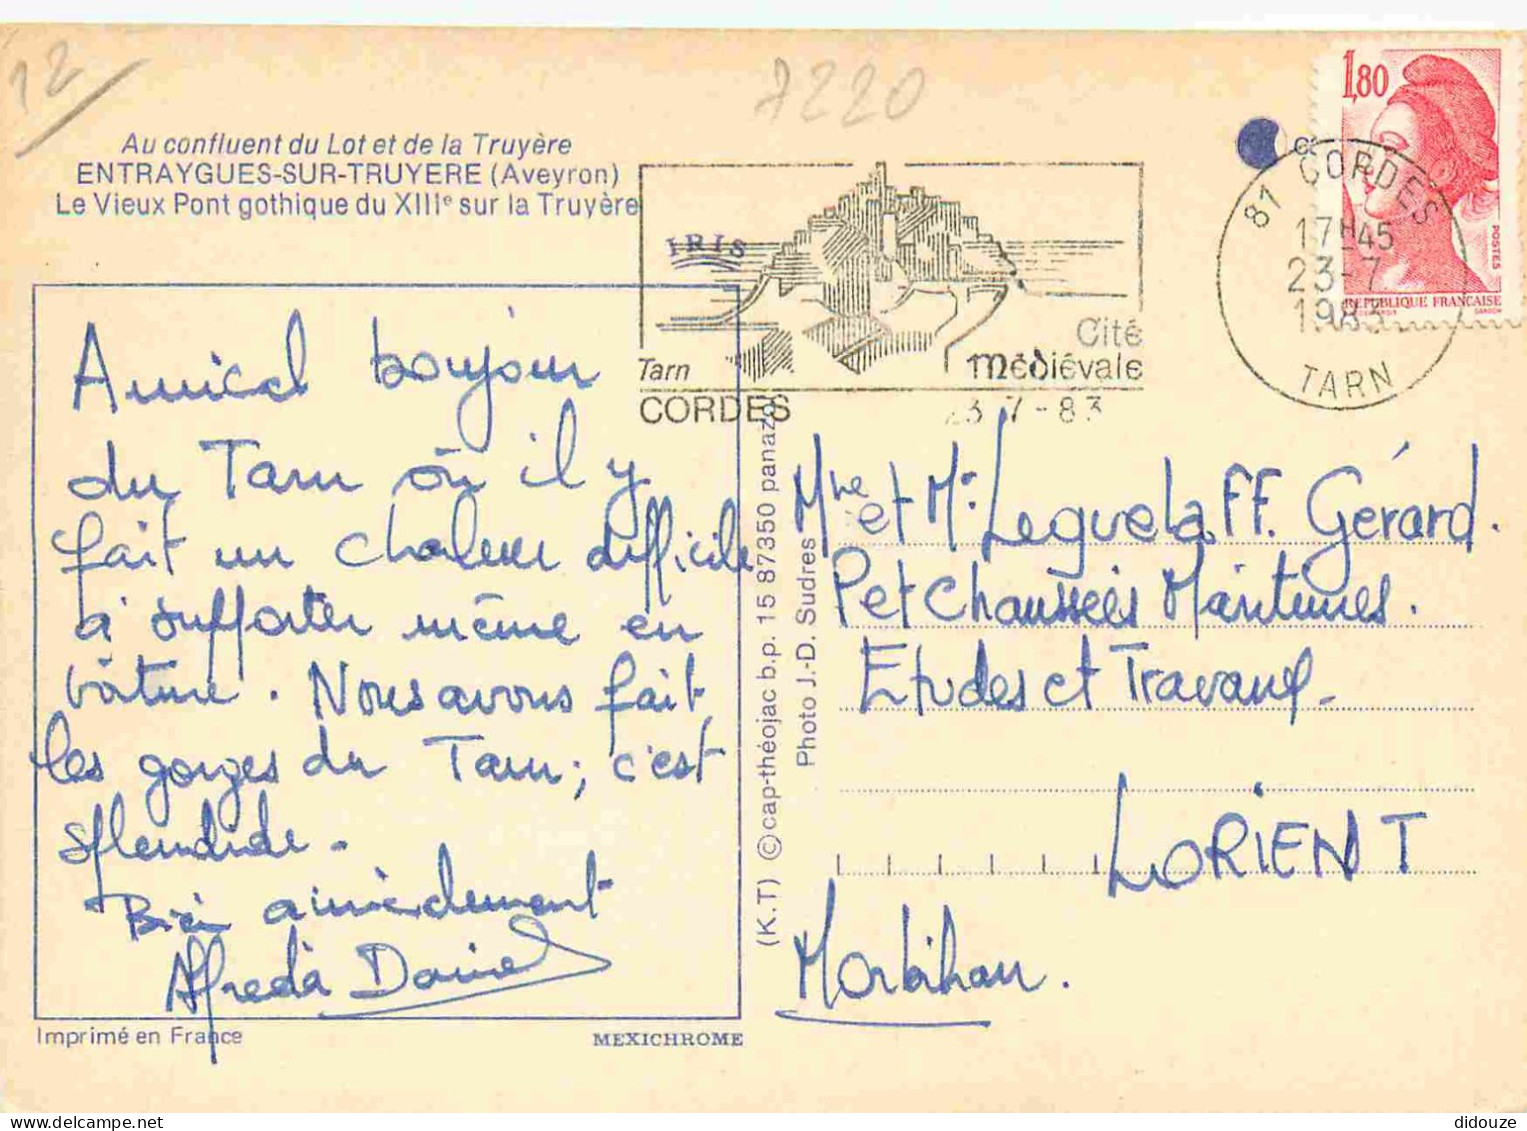 12
7220
Au confluent du Lot et de la Truyère
ENTRAYGUES-SUR-TRUYERE (Aveyron)
Le Vieux Pont gothique du XIIIe sur la Truyère
IRIS
Tarn
CORDES
Cité
Médiévale
23-7-83
81 CORDES
17H45
23-7
1983
TARN
1,80
POSTES
REPUBLIQUE FRANCAISE
GANDON
Amical bonjour
du Tarn où il y
fait un chaleur difficile
à supporter même en
voiture. Nous avons fait
les gorges du Tarn; c'est
splendide.
Bien amicalement
Alfreda Daniel
Imprimé en France
MEXICHROME
(K.T) © cap-théojac b.p. 15 87350 panazol
Photo J.-D. Sudres
Mme et Mr Leguelaff. Gérard.
P et Chaussées Maritimes.
Etudes et Travaux-
LORIENT
Morbihan.
didouze